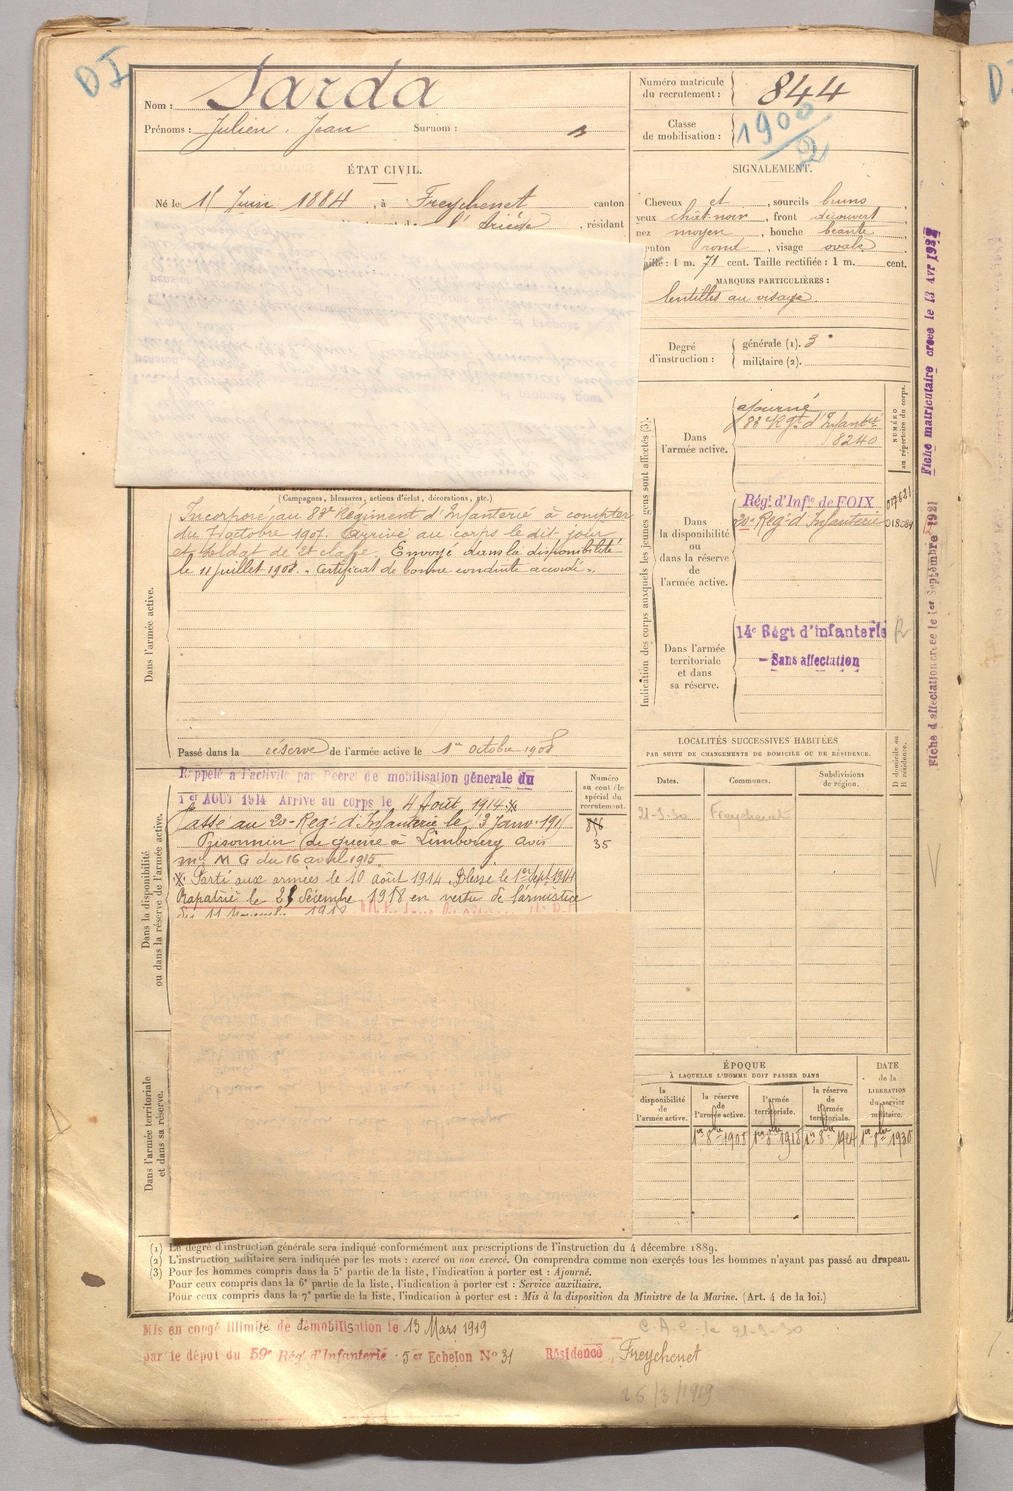 DI
Nom : Sarda
Prénoms : Julien . Jean Surnom :
Numéro matricule du recrutement : 844
Classe de mobilisation : 1900/2
ÉTAT CIVIL.
Né le 15 Juin 1884, à Freychenet canton
résidant
SIGNALEMENT.
Cheveux et , sourcils bruns ,
yeux chât-noir , front découvert
nez moyen , bouche béante ,
menton rond , visage ovale
Taille : 1 m. 71 cent. Taille rectifiée : 1 m. cent.
MARQUES PARTICULIÈRES :
lentilles au visage.
Degré d'instruction :
générale (1). 3
militaire (2).
Indication des corps auxquels les jeunes gens sont affectés (3).
NUMÉRO au répertoire du corps.
Dans l'armée active.
ajourné
88e Régt d'Infantie
8240
Dans la disponibilité ou dans la réserve de l'armée active.
Régt d'Infie de FOIX 017621
20e Reg-d'Infanterie 018084
Dans l'armée territoriale et dans sa réserve.
14e Régt d'infanterie
- Sans affectation
Fiche matriculaire créée le 13 AVR 1927
Fiche d'affectation créée le 1er Septembre 1921
(Campagnes, blessures, actions d'éclat, décorations, etc.)
Dans l'armée active.
Incorporé au 88e Régiment d'Infanterie à compter
du 7 octobre 1907. Arrivé au corps le dit jour
et soldat de 2e classe. Envoyé dans la disponibilité
le 11 juillet 1908. - Certificat de bonne conduite accordé -.
Passé dans la réserve de l'armée active le 1er octobre 1908
Dans la disponibilité ou dans la réserve de l'armée active.
Rappelé à l'activité par Décret de mobilisation générale du
1er AOUT 1914 Arrivé au corps le 4 Août 1914 X
Passé au 20e Reg-d'Infanterie le 3 Janv-191
Prisonnier de guerre à Limbourg avis
me M G du 16 avril 1915
X Parti aux armées le 10 août 1914. Blessé le 1er Sept 1914
Rapatrié le 28 Décembre 1918 en vertu de l'armistice
Numéro au contrôle spécial du recrutement.
35
LOCALITÉS SUCCESSIVES HABITÉES
PAR SUITE DE CHANGEMENTS DE DOMICILE OU DE RÉSIDENCE.
D domicile ou R résidence.
Dates.
Communes.
Subdivisions de région.
21-3-30 Freychenet
ÉPOQUE
À LAQUELLE L'HOMME DOIT PASSER DANS
DATE de la LIBÉRATION du service militaire.
la disponibilité de l'armée active.
la réserve de l'armée active.
l'armée territoriale.
la réserve de l'armée territoriale.
1er 8bre 1908 1er 8bre 1918 1er 8bre 1924 1er 8bre 1930
Dans l'armée territoriale et dans sa réserve.
(1) Le degré d'instruction générale sera indiqué conformément aux prescriptions de l'instruction du 4 décembre 1889.
(2) L'instruction militaire sera indiquée par les mots : exercé ou non exercé. On comprendra comme non exercés tous les hommes n'ayant pas passé au drapeau.
(3) Pour les hommes compris dans la 5e partie de la liste, l'indication à porter est : Ajourné.
Pour ceux compris dans la 6e partie de la liste, l'indication à porter est : Service auxiliaire.
Pour ceux compris dans la 7e partie de la liste, l'indication à porter est : Mis à la disposition du Ministre de la Marine. (Art. 4 de la loi.)
Mis en congé illimité de démobilisation le 13 Mars 1919
par le dépot du 59e Régt d'Infanterie 5er Echelon No 31 Résidence Freychenet
C.A.C. le 21-3-30
26/3/1919